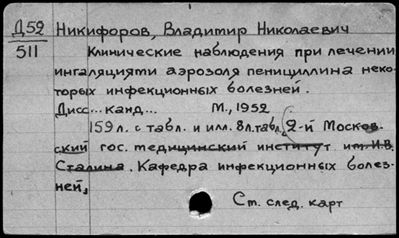 Д52 Никифоров, Владимир Николаевич
511 Клинические наблюдения при лечении
ингаляциями аэрозоля пенициллина неко-
торых инфекционных болезней.
Дисс... канд... М., 1952
159 л. с табл. и илл. 8 л. табл. (2-й Москов-
ский гос. медицинский институт им. И.В.
Сталина. Кафедра инфекционных болез-
ней,
См. след. карт